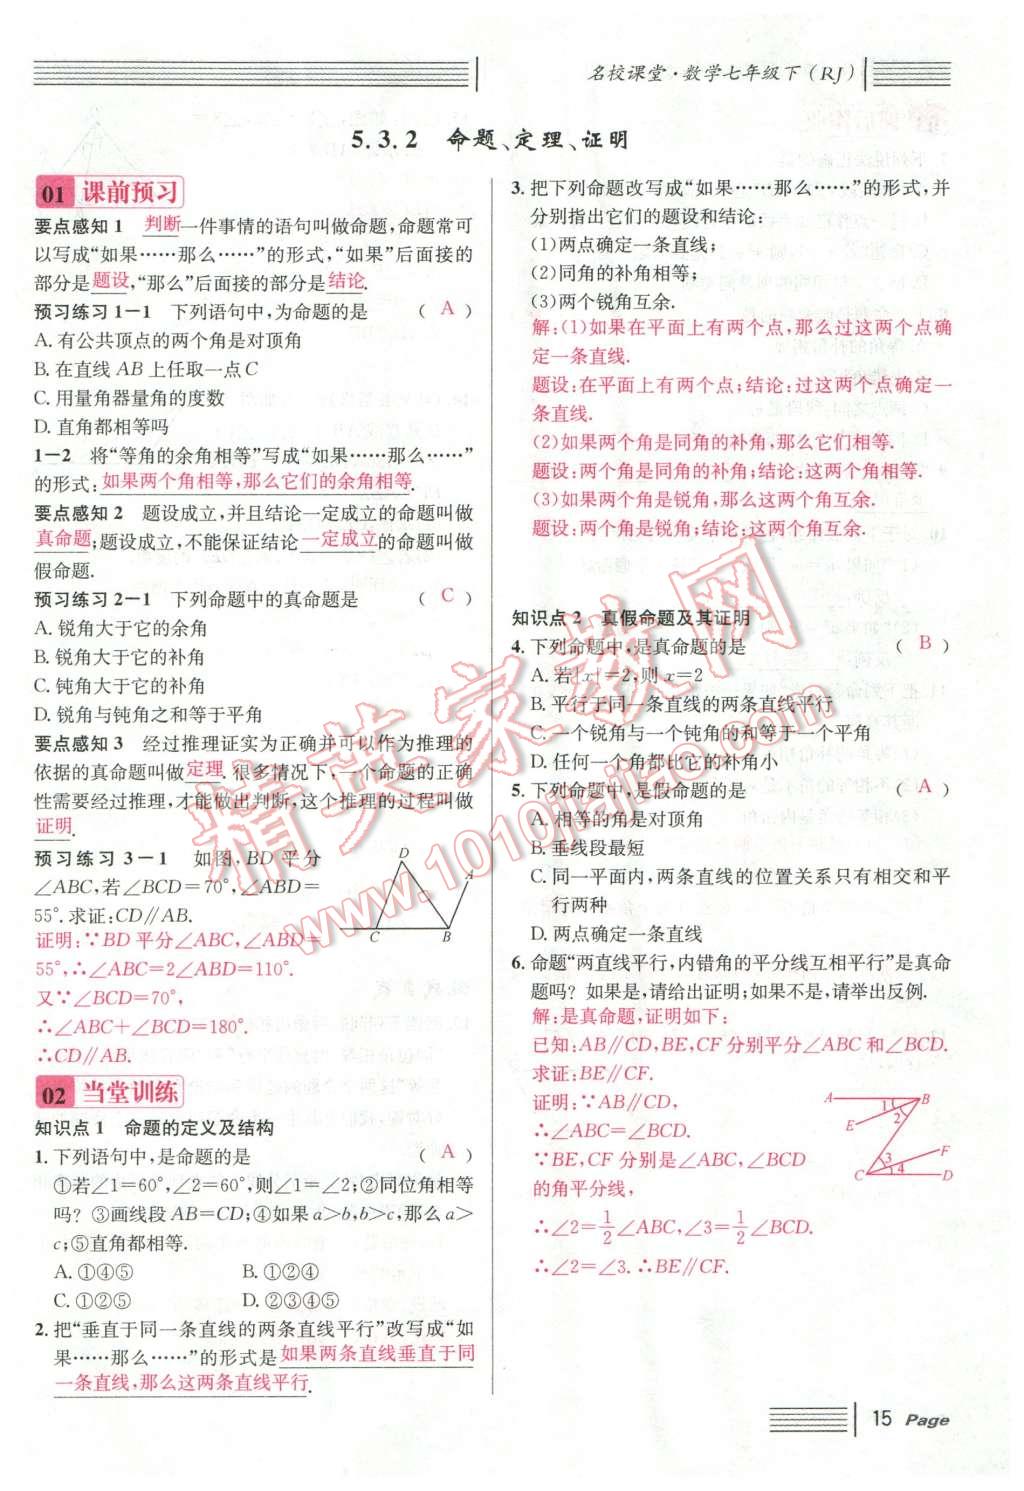 名校课堂·数学七年级下(RJ)
5.3.2 命题、定理、证明
01 课前预习
要点感知1 判断一件事情的语句叫做命题,命题常可
以写成“如果……那么……”的形式,“如果”后面接的
部分是题设,“那么”后面接的部分是结论.
预习练习1-1 下列语句中,为命题的是 ( A )
A. 有公共顶点的两个角是对顶角
B. 在直线AB上任取一点C
C. 用量角器量角的度数
D. 直角都相等吗
1-2 将“等角的余角相等”写成“如果……那么……”
的形式:如果两个角相等,那么它们的余角相等.
要点感知2 题设成立,并且结论一定成立的命题叫做
真命题;题设成立,不能保证结论一定成立的命题叫做
假命题.
预习练习2-1 下列命题中的真命题是 ( C )
A. 锐角大于它的余角
B. 锐角大于它的补角
C. 钝角大于它的补角
D. 锐角与钝角之和等于平角
要点感知3 经过推理证实为正确并可以作为推理的
依据的真命题叫做定理.很多情况下,一个命题的正确
性需要经过推理,才能做出判断,这个推理的过程叫做
证明.
预习练习3-1 如图,BD平分
∠ABC,若∠BCD=70°,∠ABD=
55°.求证:CD∥AB.
D
A
C
B
证明:∵BD平分∠ABC,∠ABD=
55°,∴∠ABC=2∠ABD=110°.
又∵∠BCD=70°,
∴∠ABC+∠BCD=180°.
∴CD∥AB.
02 当堂训练
知识点1 命题的定义及结构
1. 下列语句中,是命题的是 ( A )
①若∠1=60°,∠2=60°,则∠1=∠2;②同位角相等
吗?③画线段AB=CD;④如果a>b,b>c,那么a>
c;⑤直角都相等.
A. ①④⑤ B. ①②④
C. ①②⑤ D. ②③④⑤
2. 把“垂直于同一条直线的两条直线平行”改写成“如
果……那么……”的形式是如果两条直线垂直于同
一条直线,那么这两条直线平行.
3. 把下列命题改写成“如果……那么……”的形式,并
分别指出它们的题设和结论:
(1)两点确定一条直线;
(2)同角的补角相等;
(3)两个锐角互余.
解:(1)如果在平面上有两个点,那么过这两个点确
定一条直线.
题设:在平面上有两个点;结论:过这两个点确定一
条直线.
(2)如果两个角是同角的补角,那么它们相等.
题设:两个角是同角的补角;结论:这两个角相等.
(3)如果两个角是锐角,那么这两个角互余.
题设:两个角是锐角;结论:这两个角互余.
知识点2 真假命题及其证明
4. 下列命题中,是真命题的是 ( B )
A. 若|x|=2,则x=2
B. 平行于同一条直线的两条直线平行
C. 一个锐角与一个钝角的和等于一个平角
D. 任何一个角都比它的补角小
5. 下列命题中,是假命题的是 ( A )
A. 相等的角是对顶角
B. 垂线段最短
C. 同一平面内,两条直线的位置关系只有相交和平
行两种
D. 两点确定一条直线
6. 命题“两直线平行,内错角的平分线互相平行”是真命
题吗?如果是,请给出证明;如果不是,请举出反例.
解:是真命题,证明如下:
已知:AB∥CD,BE,CF分别平分∠ABC和∠BCD.
求证:BE∥CF.
证明:∵AB∥CD,
∴∠ABC=∠BCD.
∵BE,CF分别是∠ABC,∠BCD
的角平分线,
∴∠2=1/2∠ABC,∠3=1/2∠BCD.
∴∠2=∠3.∴BE∥CF.
A
B
1
2
E
3
F
4
C
D
精英家教网
www.1010jiajiao.com
15 Page